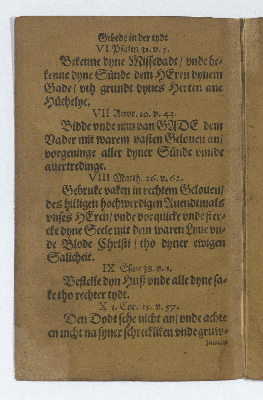 Gebede in der tydt
VI. Psalm 32. v. 5.
Bekenne dyne Missedadt / vnde be-
kenne dyne Sünde dem HEren dynem
Gade / vth grundt dynes Herten ane
Hüchelye.
VII Actor. 10. v. 43.
Bidde vnde nim van GADE dem
Vader mit warem vasten Gelouen an /
vorgeuinge aller dyner Sünde vnnde
auertredinge.
VIII Matth. 26. v. 62.
Gebruke vaken in rechtem Gelouen /
des hilligen hochwerdigen Auendtmals
vnses HEren / vnde vorquicke vnde ster-
cke dyne Seele mit dem waren Lyue vn-
de Blode Christi / tho dyner ewigen
Salicheit.
IX Esaie 38. v. 1.
Bestelle dyn Huß vnde alle dyne sa-
ke tho rechter tydt.
X 1. Cor. 15. v. 57.
Den Dodt sehe nicht an / vnde achte
en nicht na syner schreckliken vnde gruw-